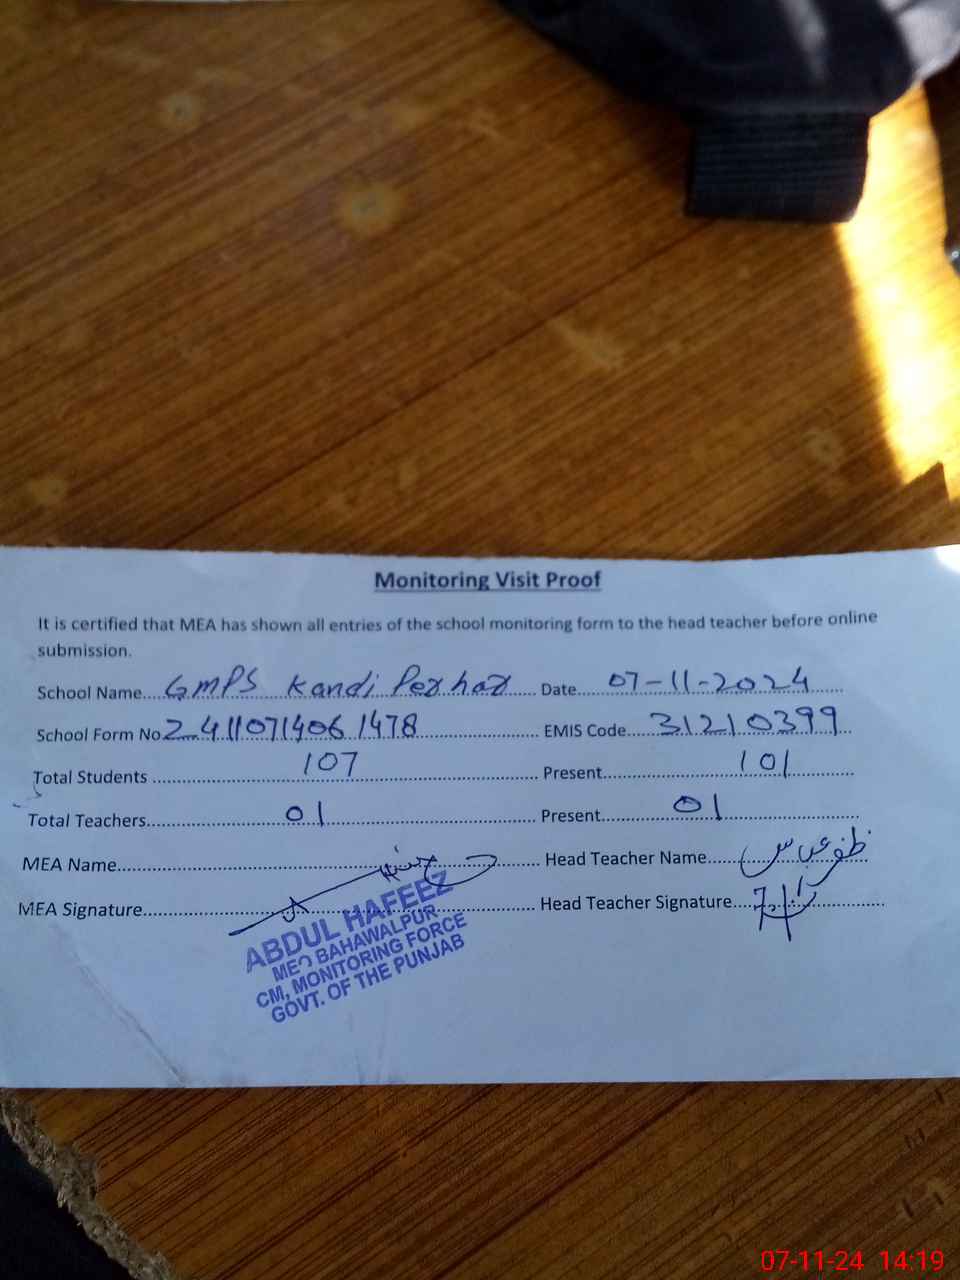 Monitoring Visit Proof
It is certified that MEA has shown all entries of the school monitoring form to the head teacher before online
submission.
School Name.... GMPS Kandi Perhar .... Date.... 07-11-2024
School Form No 2411071406 1478 .... EMIS Code.... 31210399
Total Students .... 107 .... Present.... 101
Total Teachers.... 01 .... Present.... 01
MEA Name.... Head Teacher Name.... ظفر عباس
MEA Signature.... Head Teacher Signature....
ABDUL HAFEEZ
MEO BAHAWALPUR
CM, MONITORING FORCE
GOVT. OF THE PUNJAB
07-11-24 14:19